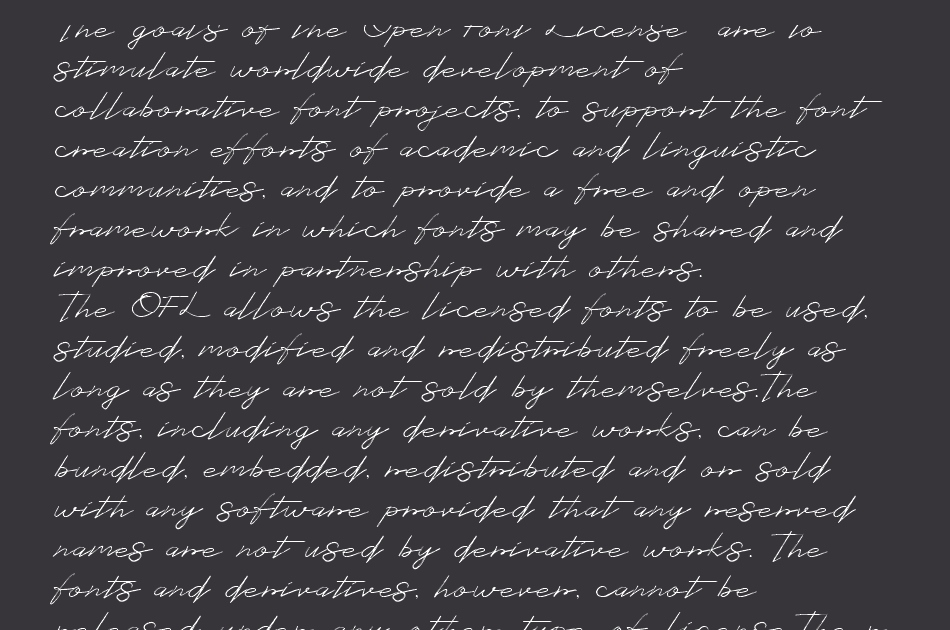 The goals of the Open Font License  are to
stimulate worldwide development of
collaborative font projects, to support the font
creation efforts of academic and linguistic
communities, and to provide a free and open
framework in which fonts may be shared and
improved in partnership with others.
The OFL allows the licensed fonts to be used,
studied, modified and redistributed freely as
long as they are not sold by themselves.The
fonts, including any derivative works, can be
bundled, embedded, redistributed and or sold
with any software provided that any reserved
names are not used by derivative works. The
fonts and derivatives, however, cannot be
released under any other type of license.The